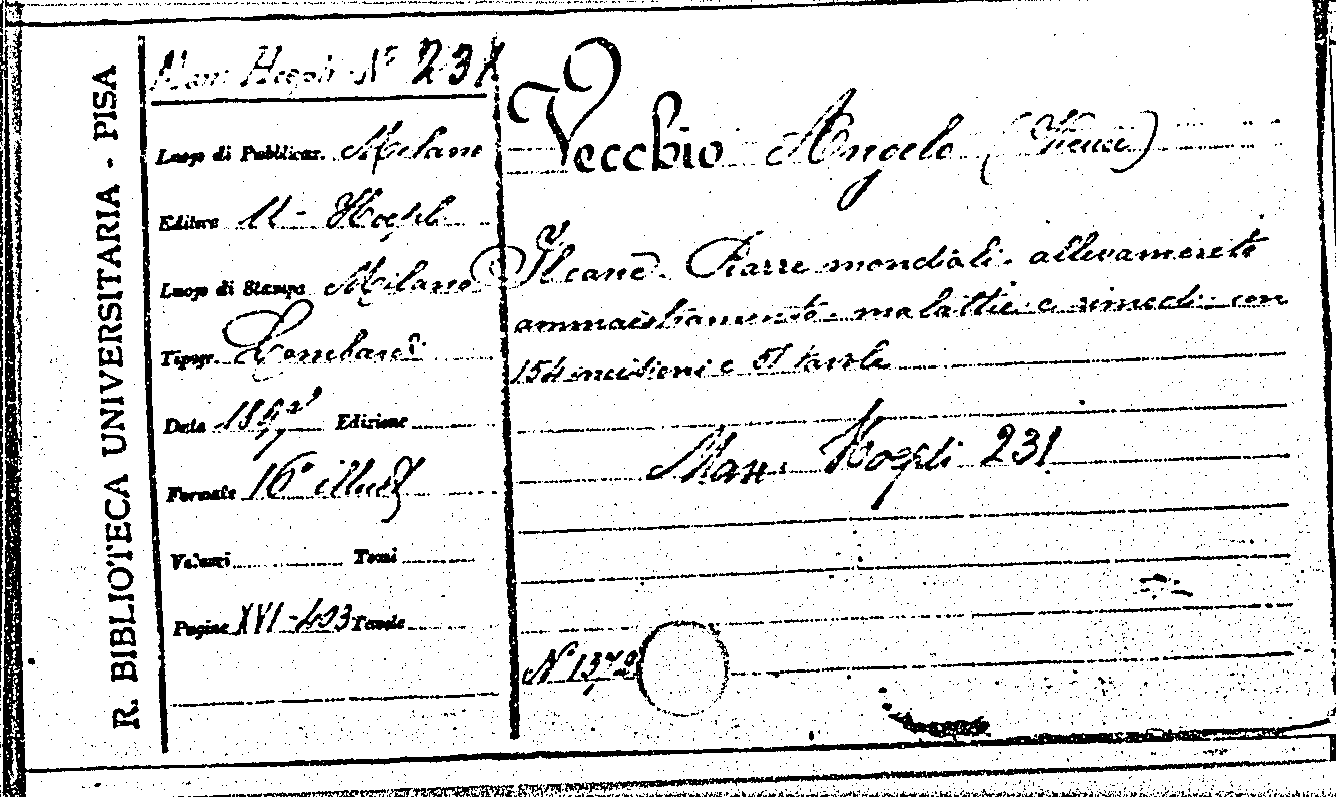 R. BIBLIOTECA UNIVERSITARIA - PISA
Man Hoepli N° 231
Luogo di Pubblicaz. Milano
Editore U - Hoepli
Luogo di Stampa Milano
Tipogr. Lombardi
Data 1897 Edizione
Formato 16° illust
Volumi Tomi
Pagine XVI-403 Tavole
Vecchio Angelo
Il cane. Razze mondiali. allevamento
ammaestramento. malattie e rimedi. con
154 incisioni e 51 tavole
Man. Hoepli 231
N° 1372